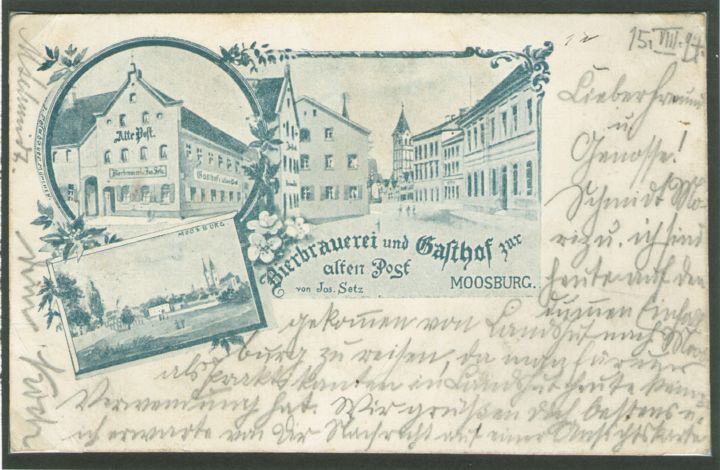 15. VIII. 97.
Alte Post.
Bierbrauerei v. Jos. Setz.
Gasthof z. alten Post
MOOSBURG.
Bierbrauerei und Gasthof zur
alten Post
von Jos. Setz
MOOSBURG.
Lieber Freund
u.
Genosse!
Schmidt
u. ich sind
heute auf den
dummen Einfall
gekommen von Landshut nach Moos
burg zu reisen, da man für uns
als Praktikanten in Landshut heute keine
Verwendung hat. Wir grüßen Dich bestens u.
ich erwarte von Dir Nachricht auf einer Ansichtskarte